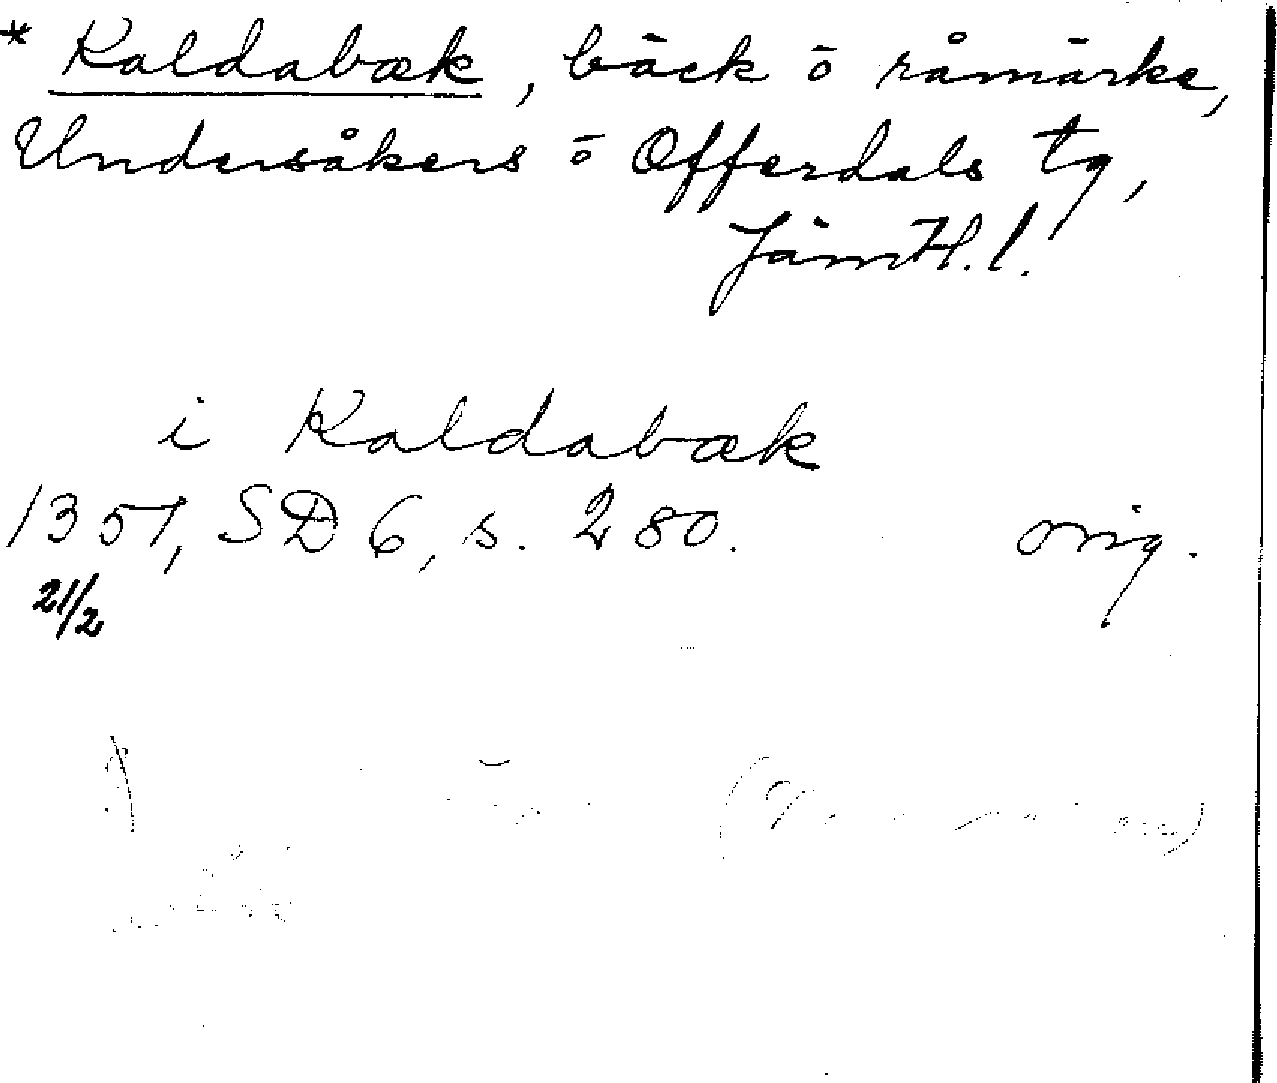 * Kaldabæk, bäck ö råmärke,
Undersåkers ö Offerdals tg,
JämtH. l.
i Kaldabæk
1351, SD 6, s. 280. orig.
21/2